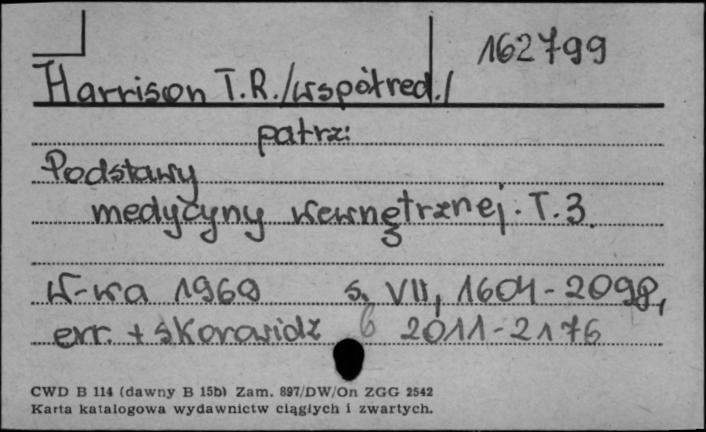 162799
Harrison T.R./współred./
patrz:
Podstawy
medycyny wewnętrznej. T.3.
W-wa 1960 s. VII, 1604-2098,
err. + skorowidz 2011-2176
CWD B 114 (dawny B 15b) Zam. 897/DW/On ZGG 2542
Karta katalogowa wydawnictw ciągłych i zwartych.